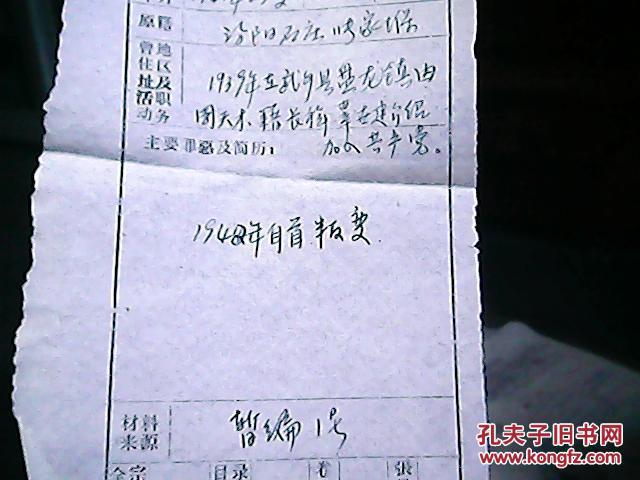 原籍
汾阳石庄
曾地
住区
址及
活职
动务
1939年在武乡县蟠龙镇由
加入共产党。
主要罪恶及简历:
1942年自首叛变
材料
来源
暂编1号
全宗
目录
卷
張
孔夫子旧书网
www.kongfz.com